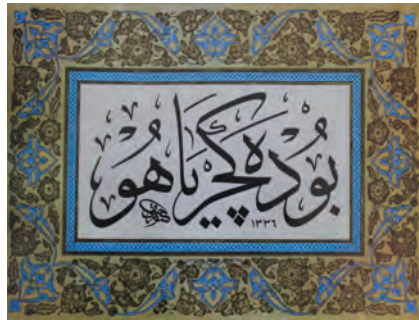 بُودَه كَچَرْ يَاهُو
١٣٣٦